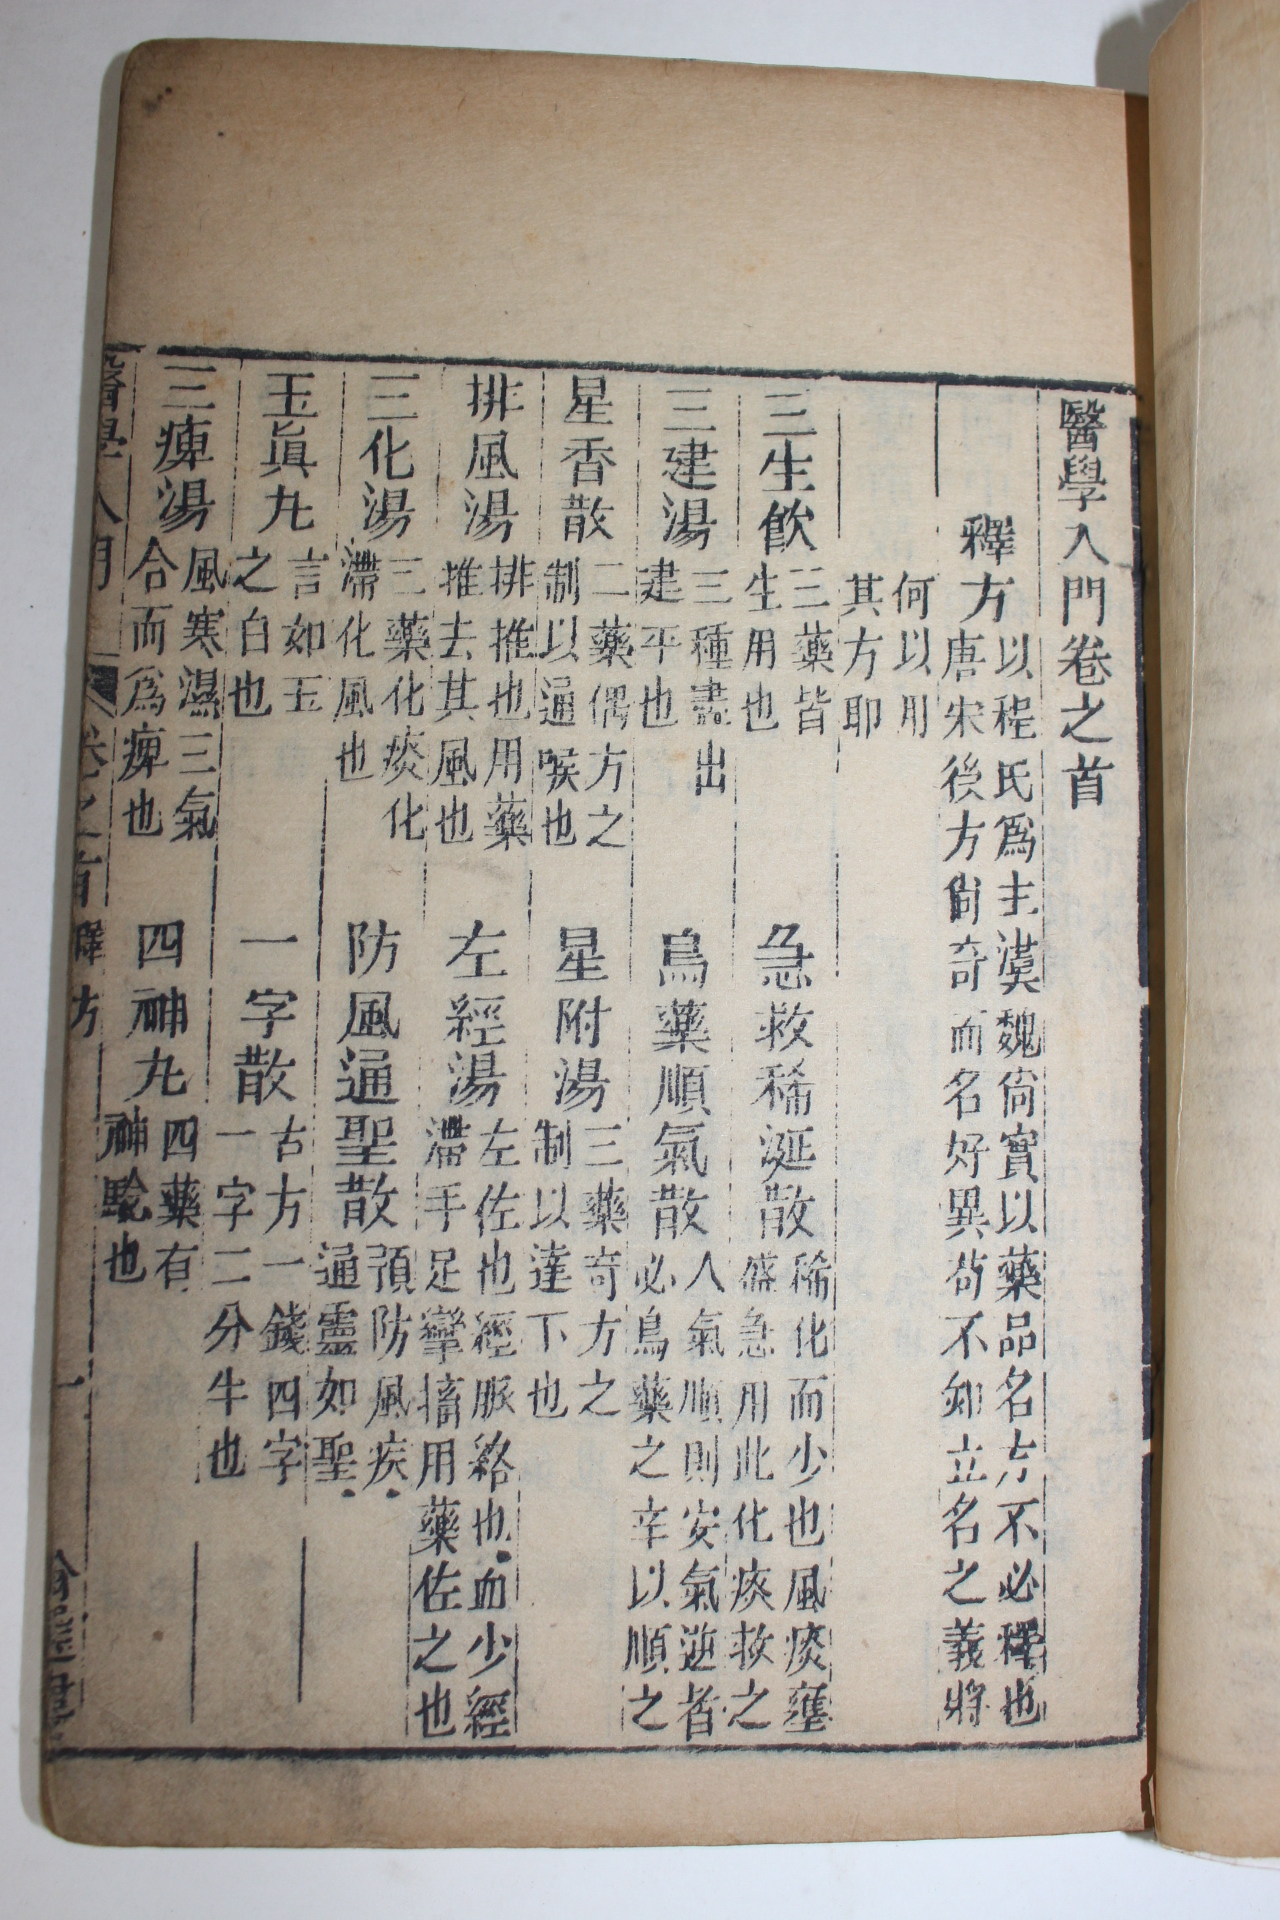 醫學入門卷之首
釋方 以程氏爲主漢魏尙實以藥品名方不必釋也
唐宋後方尙奇而名好異苟不知立名之義將
何以用
其方耶
三生飮 三藥皆
生用也
急救稀涎散 稀化而少也風痰壅
盛急用此化痰救之
三建湯 三種盡出
建平也
烏藥順氣散 人氣順則安氣逆者
必烏藥之辛以順之
星香散 二藥偶方之
制以通喉也
星附湯 三藥奇方之
制以達下也
排風湯 排推也用藥
推去其風也
左經湯 左佐也經脈絡也血少經
滯手足攣搐用藥佐之也
三化湯 三藥化痰化
滯化風也
防風通聖散 預防風疾
通靈如聖
玉眞丸 言如玉
之白也
一字散 古方一錢四字
一字二分半也
三痺湯 風寒濕三氣
合而爲痺也
四神丸 四藥有
神驗也
醫學入門 卷之首 釋方 一